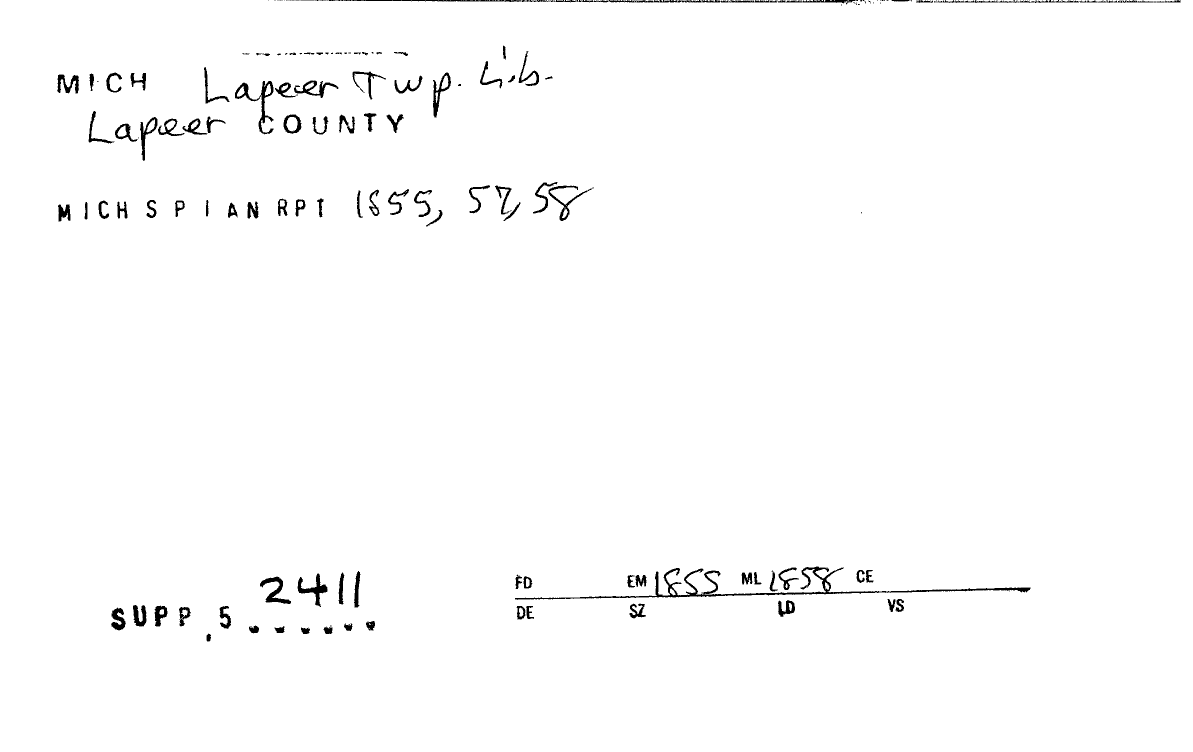 MICH Lapeer Twp. Lib.
Lapeer COUNTY
MICH S P I AN RPT 1855, 57, 58
2411
SUPP.5 ......
FD EM 1855 ML 1858 CE
DE SZ LD VS